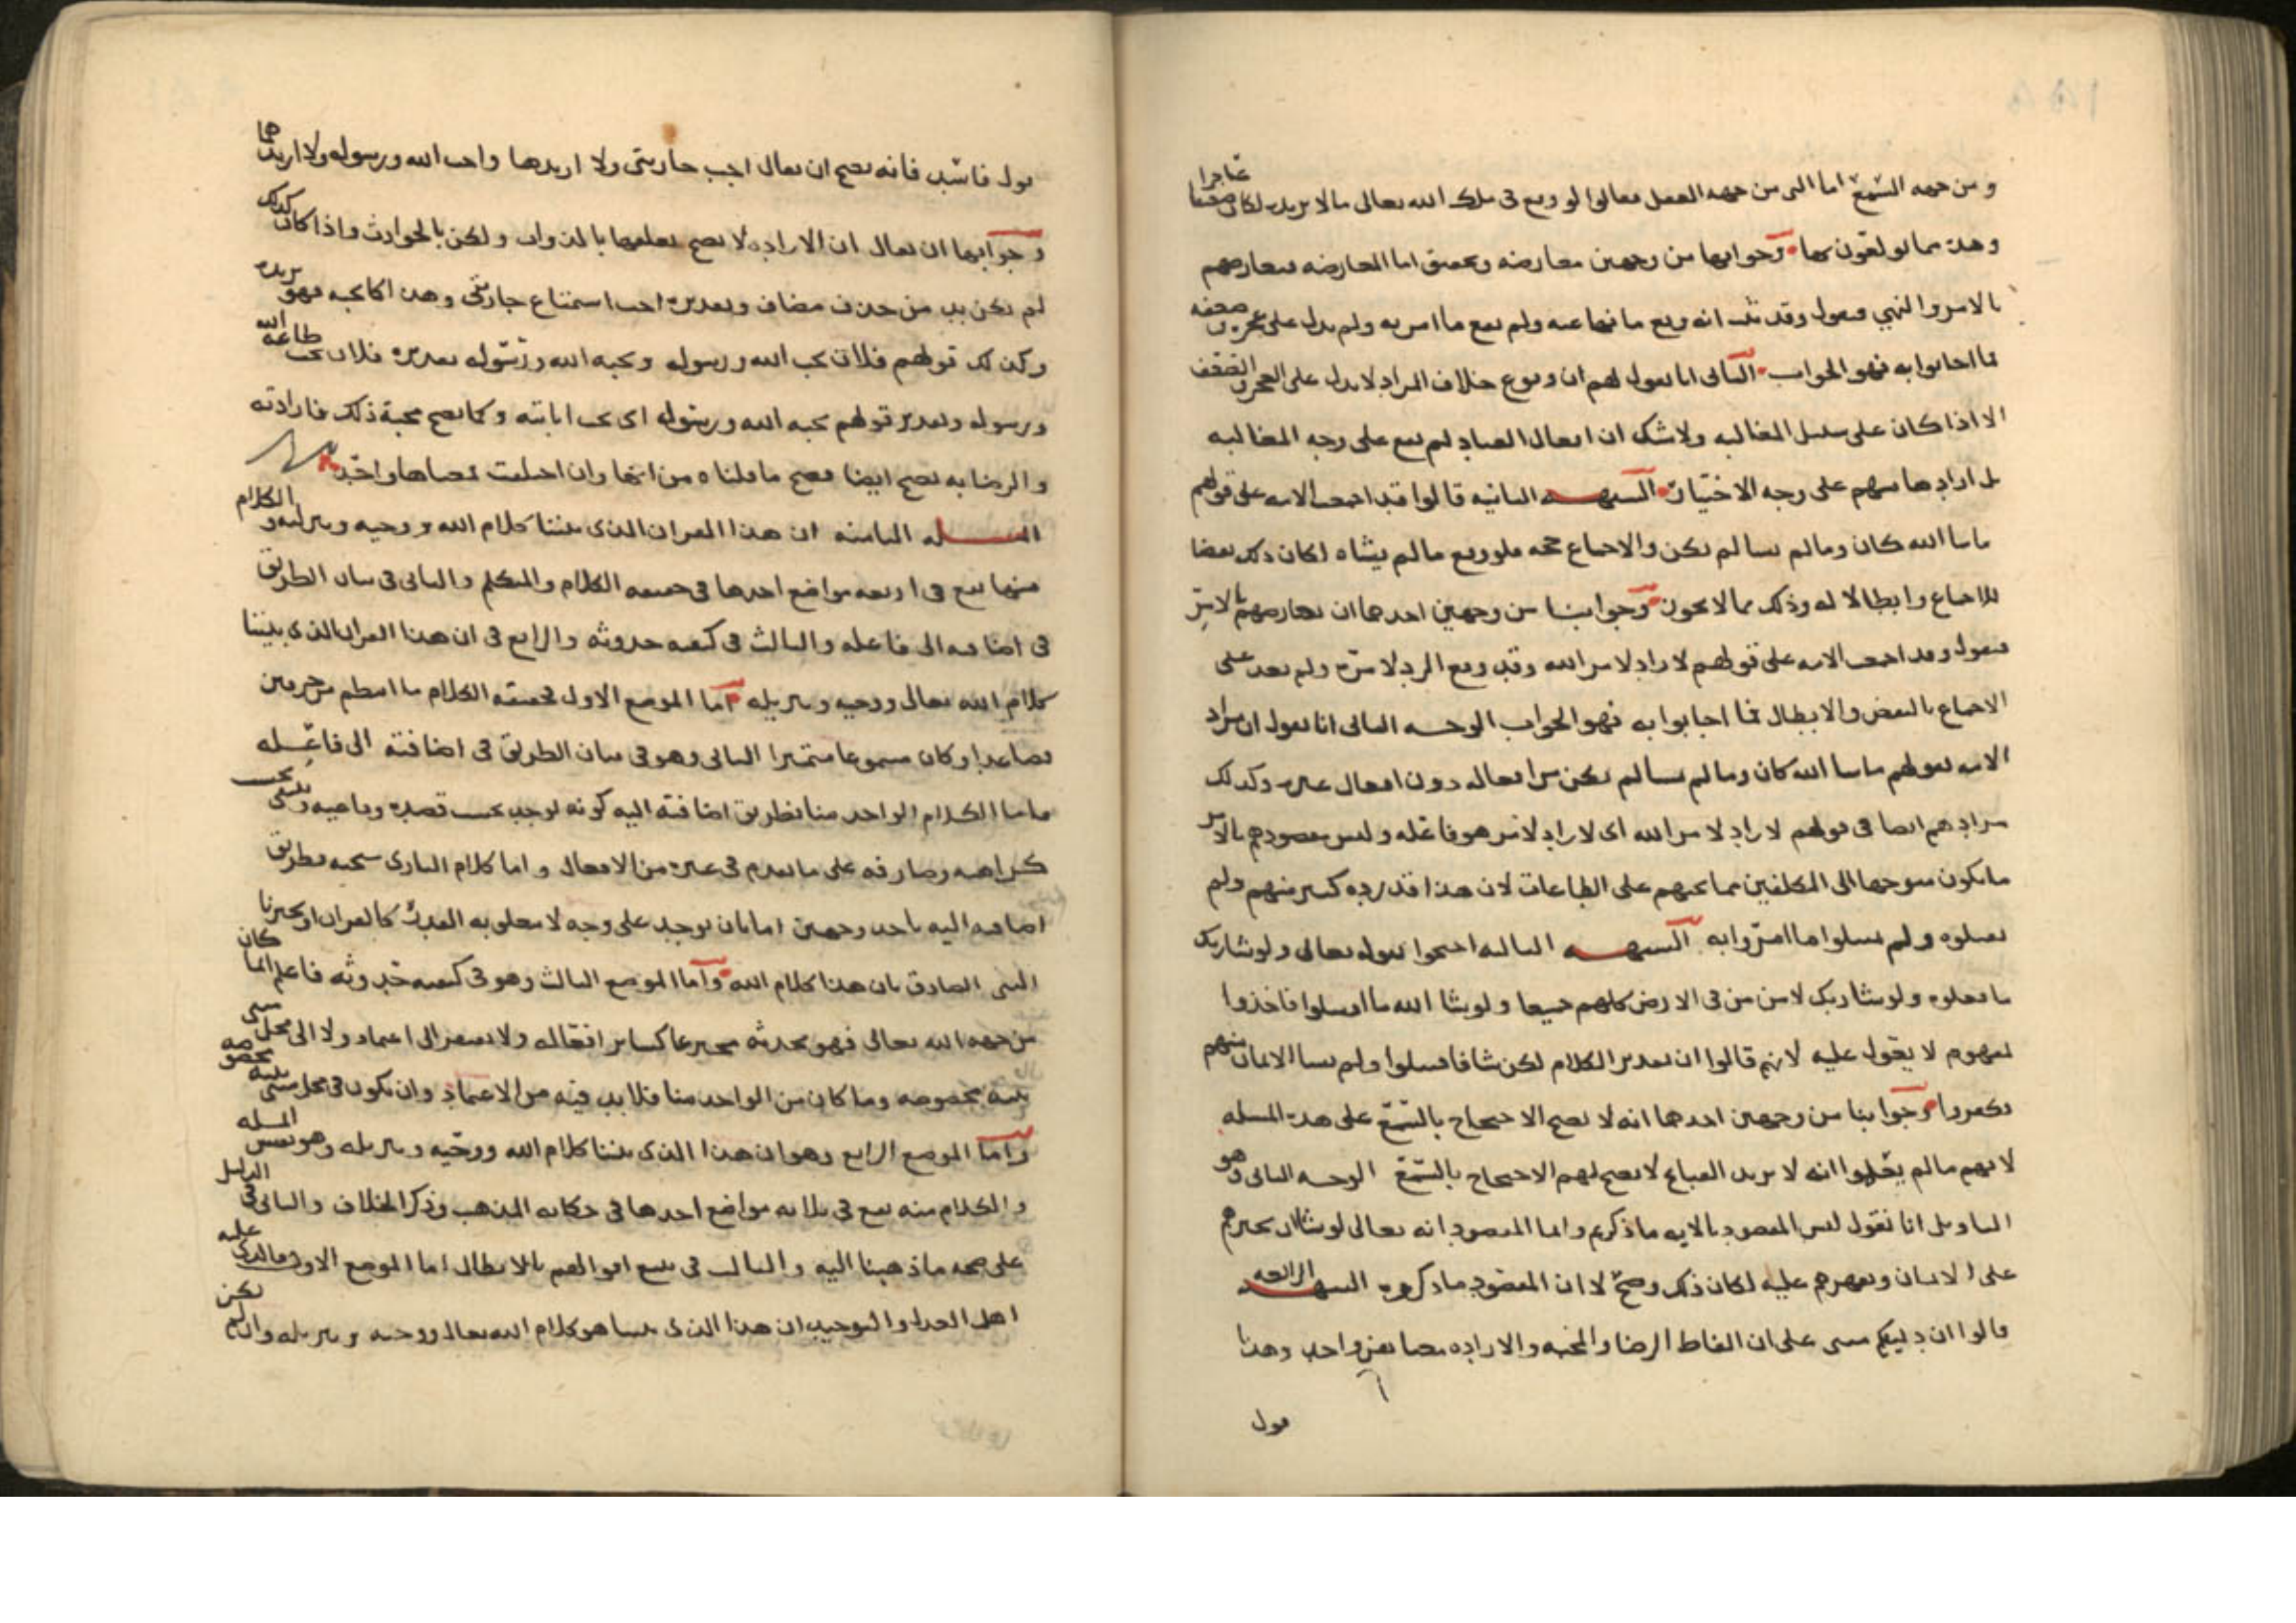 ومن جهه السمع اما التى من جهه العقل فقالوا لو وقع فى ملك الله تعالى ما لا يريد لكان عاجزا ضعيفا
وهذه مما يولعون بها وجوابها من وجهين معارضه وتحقيق اما المعارضه فنعارضهم
بالامر والنهي فنقول وقد ثبت انه وقع ما نها عنه ولم يقع ما امر به ولم يدل على عجزه وضعفه
فما اجابوا به فهو الجواب الثانى انا نقول لهم ان وقوع خلاف المراد لا يدل على العجز والضعف
الا اذا كان على سبيل المغالبه ولا شك ان افعال العباد لم تقع على وجه المغالبه
بل ارادها منهم على وجه الاختيار الشبهه الثانيه قالوا قد اجمعت الامه على قولهم
ما شا الله كان وما لم يشا لم يكن والاجماع حجه فلو وقع ما لم يشاه لكان ذلك نقضا
للاجماع وابطالا له وذلك مما لا يجوز وجوابنا من وجهين احدهما ان نعارضهم بالامر
فنقول وقد اجمعت الامه على قولهم لا راد لامر الله وقد وقع الرد لامره ولم يعد على
الاجماع بالنقض والابطال فما اجابوا به فهو الجواب الوجه الثانى انا نقول ان مراد
الامه بقولهم ما شا الله كان وما لم يشا لم يكن من افعاله دون افعال غيره وكذلك
مرادهم ايضا فى قولهم لا راد لامر الله اى لا راد لامر هو فاعله وليس مقصودهم بالامر
ما يكون متوجها الى المكلفين مما يحثهم على الطاعات لان هذا قد رده كثير منهم ولم
يقبلوه ولم يفعلوا ما امروا به الشبهه الثالثه احتجوا بقوله تعالى ولو شا ربك
ما فعلوه ولو شا ربك لامن من فى الارض كلهم جميعا ولو شا الله ما اقتتلوا فاخذوا
بمفهوم لا يعول عليه لانهم قالوا ان تقدير الكلام لكن شا فاقتتلوا ولم يشا الايمان منهم
فكفروا وجوابنا من وجهين احدهما انه لا يصح الاحتجاج بالسمع على هذه المسله
لانهم ما لم يعلموا انه لا يريد القبائح لا يصح لهم الاحتجاج بالسمع الوجه الثانى وهو
التاويل انا نقول ليس المقصود بالايه ما ذكرتم وانما المقصود انه تعالى لو شا ان يجبرهم
على الايمان ويقهرهم عليه لكان ذلك وصح لا ان المقصود ما ذكروه الشبهه الرابعه
قالوا ان دليلكم مبنى على ان الفاظ الرضا والمحبه والاراده معناهن واحد وهذا
قول
قول فاسد فانه يصح ان يقال احب جاريتى ولا اريدها واحب الله ورسوله ولا اريدهما
وجوابها ان يقال ان الاراده لا يصح تعلقها بالذوات ولكن بالحوادث واذا كان كذلك
لم يكن بد من حذف مضاف وتقديره احب استمتاع جاريتى وهذا كما يحبه فهو يريده
وكذلك قولهم فلان يحب الله ورسوله ويحبه الله ورسوله تقديره فلان يحب طاعه الله
ورسوله وتقدير قولهم يحبه الله ورسوله اى يحب اثابته وكما يصح محبة ذلك فارادته
والرضا به يصح ايضا فصح ما قلناه من انها وان اختلفت فمعناها واحد
المسله الثامنه ان هذا القران الذى بيننا كلام الله ووحيه وتنزيله والكلام
منها يقع فى اربعه مواضع احدها فى حقيقه الكلام والمتكلم والثانى فى بيان الطريق
فى اضافته الى فاعله والثالث فى كيفيه حدوثه والرابع فى ان هذا القران الذى بيننا
كلام الله تعالى ووحيه وتنزيله اما الموضع الاول فحقيقه الكلام ما انتظم من حرفين
فصاعدا وكان مسموعا متميزا الثانى وهو فى بيان الطريق فى اضافته الى فاعله
فاما الكلام الواحد منا فطريق اضافته اليه كونه يوجد بحسب قصده وداعيه وينتفى بحسب
كراهته وصارفه على ما تقدم فى غيره من الافعال واما كلام البارى سبحنه فطريق
اضافته اليه باحد وجهين اما بان يوجد على وجه لا يتعلق به القدر كالقران او يخبرنا
النبى الصادق بان هذا كلام الله واما الموضع الثالث وهو فى كيفيه حدوثه فاعلم انما كان
من جهه الله تعالى فهو يحدثه مخترعا كساير افعاله ولا يفتقر الى اعتماد ولا الى محل مبنى
بنيه مخصوصه وما كان من الواحد منا فلا بد فيه من الاعتماد وان يكون فى محل مبنى بنيه مخصوصه
واما الموضع الرابع وهو ان هذا الذى بيننا كلام الله ووحيه وتنزيله وهو نفس المسله
والكلام منه يقع فى ثلاثه مواضع احدها فى حكايه المذهب وذكر الخلاف والثانى فى الدليل
على صحه ما ذهبنا اليه والثالث فى تتبع اقوالهم بالابطال اما الموضع الاول فالذى عليه
اهل العدل والتوحيد ان هذا الذى بيننا هو كلام الله تعالى ووحيه وتنزيله وان لم يكن